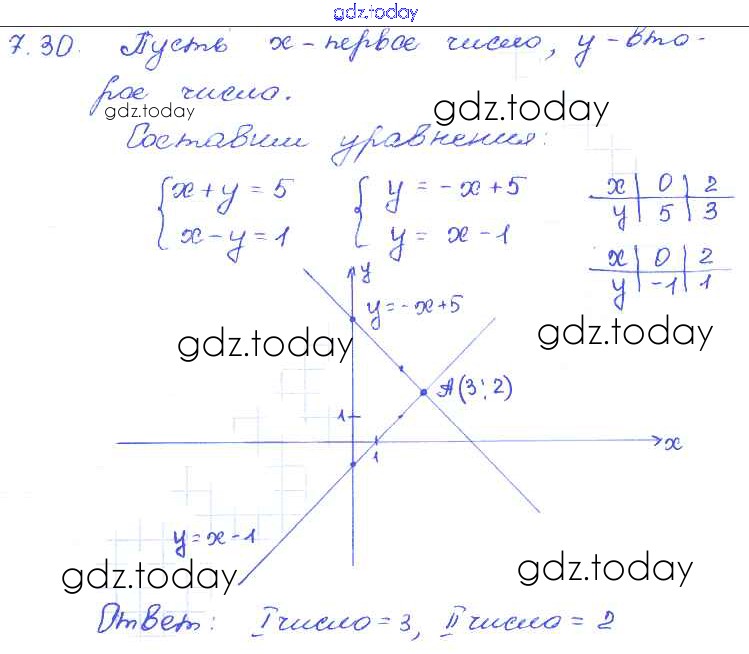 gdz.today
7.30. Пусть x - первое число, y - вто-
рое число.
gdz.today
gdz.today
Составим уравнения:
{x + y = 5 {y = -x + 5
x - y = 1 y = x - 1
x | 0 | 2
y | 5 | 3
x | 0 | 2
y | -1 | 1
y
y = -x + 5
gdz.today
gdz.today
A(3; 2)
1
x
1
y = x - 1
gdz.today
gdz.today
Ответ: I число = 3, II число = 2